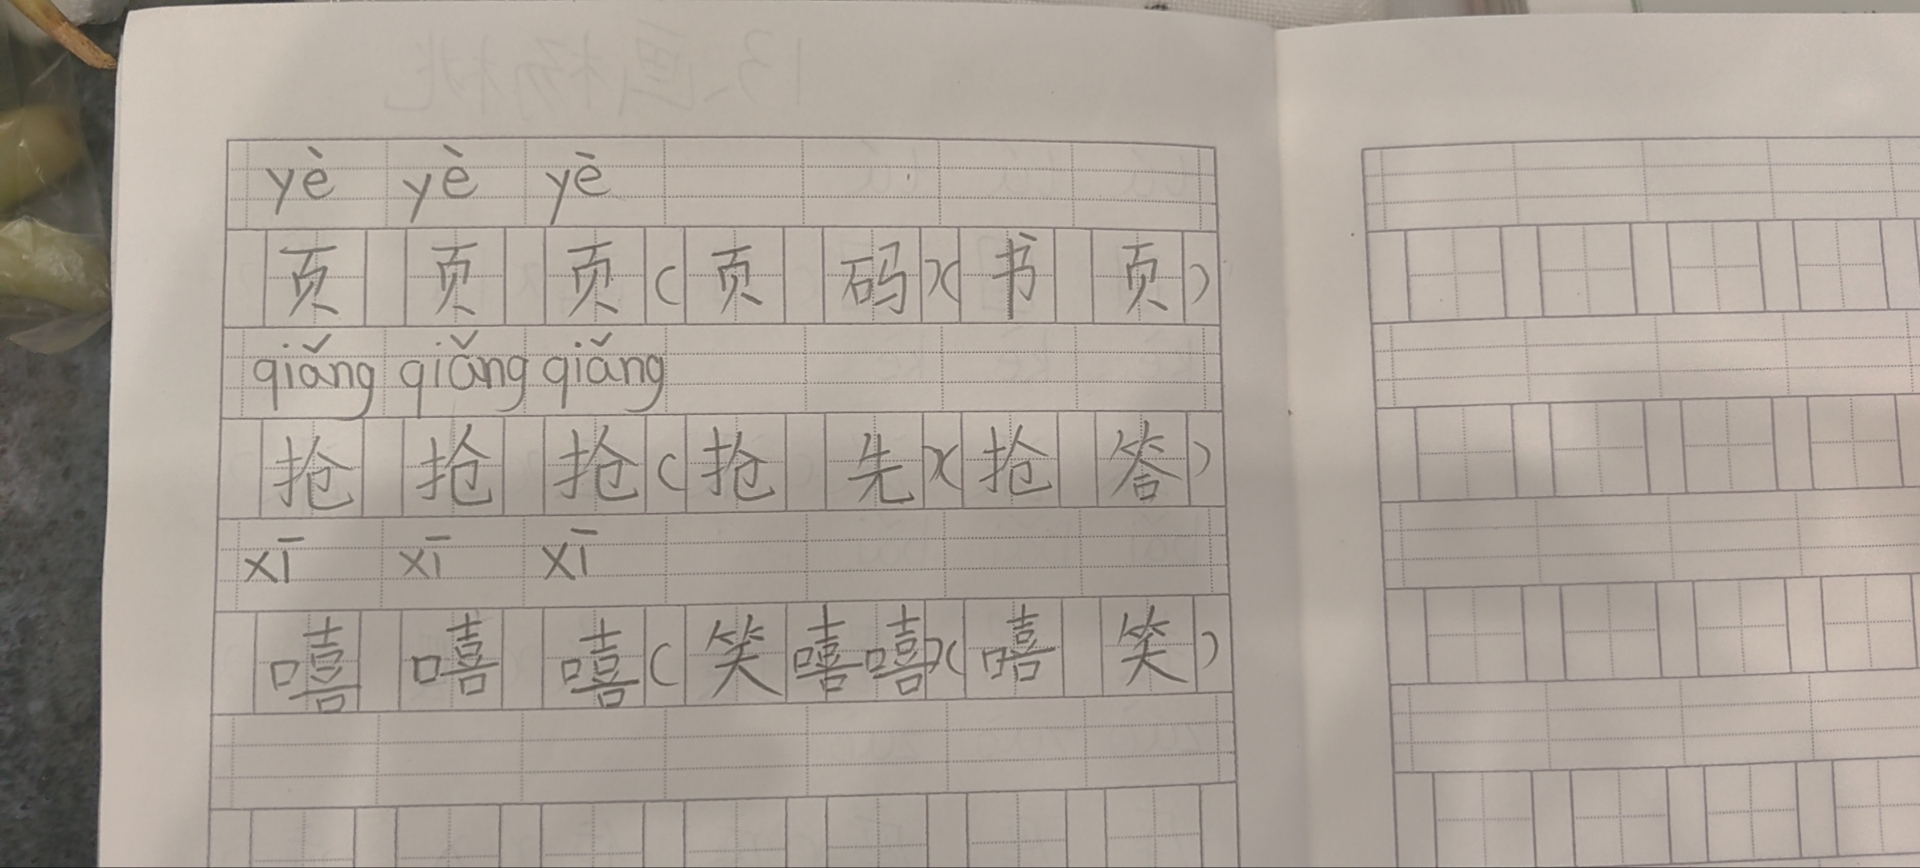 yè yè yè
页 页 页 (页 码)(书 页)
qiǎng qiǎng qiǎng
抢 抢 抢 (抢 先)(抢 答)
xī xī xī
嘻 嘻 嘻 (笑 嘻嘻)(嘻 笑)